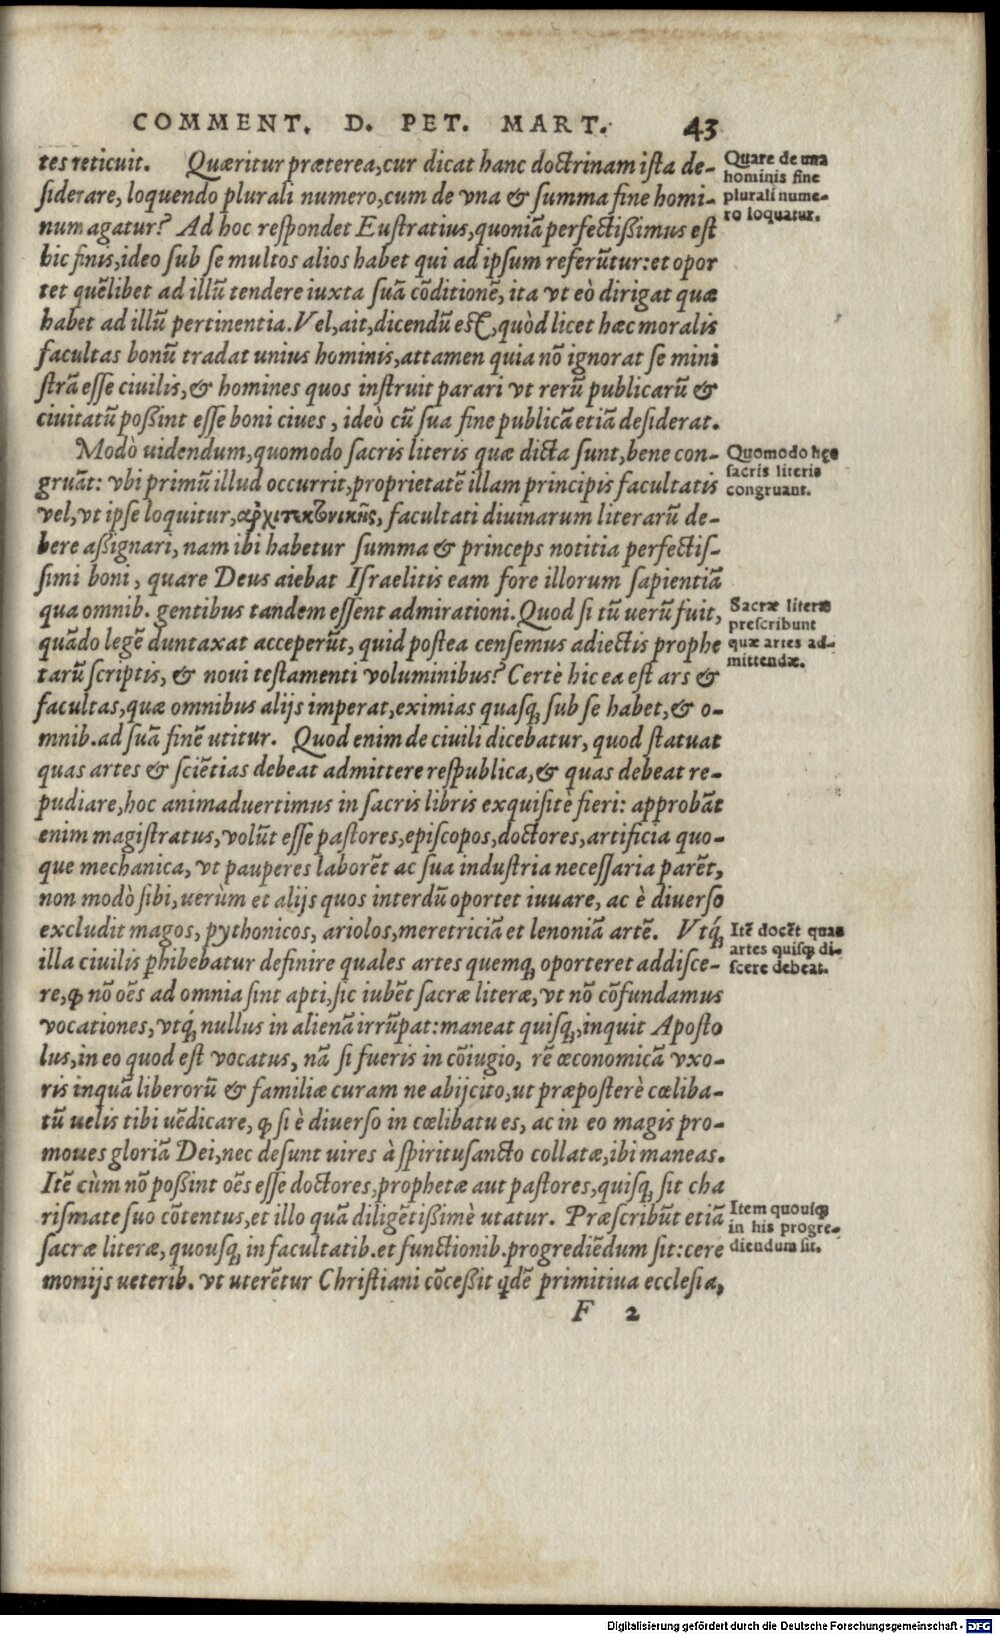 COMMENT. D. PET. MART. 43
tes reticuit. Quæritur præterea, cur dicat hanc doctrinam ista de-
siderare, loquendo plurali numero, cum de vna & summa fine homi-
num agatur? Ad hoc respondet Eustratius, quoniã perfectißimus est
hic finis, ideo sub se multos alios habet qui ad ipsum referũtur: et opor
tet quẽlibet ad illũ tendere iuxta suã cõditionẽ, ita vt eò dirigat quæ
habet ad illũ pertinentia. Vel, ait, dicendũ est, quòd licet hæc moralis
facultas bonũ tradat unius hominis, attamen quia nõ ignorat se mini
strã esse ciuilis, & homines quos instruit parari vt rerũ publicarũ &
ciuitatũ poßint esse boni ciues, ideò cũ sua fine publicã etiã desiderat.
Quare de una
hominis fine
plurali nume-
ro loquatur.
Modò uidendum, quomodo sacris literis quæ dicta sunt, bene con-
gruãt: vbi primũ illud occurrit, proprietatẽ illam principis facultatis
vel, vt ipse loquitur, ἀρχιτεκτονικῆς, facultati diuinarum literarũ de-
bere aßignari, nam ibi habetur summa & princeps notitia perfectis-
simi boni, quare Deus aiebat Israelitis eam fore illorum sapientiã
qua omnib. gentibus tandem essent admirationi. Quod si tũ uerũ fuit,
quãdo legẽ duntaxat acceperũt, quid postea censemus adiectis prophe
tarũ scriptis, & noui testamenti voluminibus? Certè hic ea est ars &
facultas, quæ omnibus alijs imperat, eximias quasq; sub se habet, & o-
mnib. ad suã finẽ utitur. Quod enim de ciuili dicebatur, quod statuat
quas artes & sciẽtias debeat admittere respublica, & quas debeat re-
pudiare, hoc animaduertimus in sacris libris exquisitè fieri: approbãt
enim magistratus, volũt esse pastores, episcopos, doctores, artificia quo-
que mechanica, vt pauperes laborẽt ac sua industria necessaria parẽt,
non modò sibi, uerùm et alijs quos interdũ oportet iuuare, ac è diuerso
excludit magos, pythonicos, ariolos, meretriciã et lenoniã artẽ. Vtq́;
illa ciuilis ꝓhibebatur definire quales artes quemq; oporteret addisce-
re, ꝙ nõ oẽs ad omnia sint apti, sic iubẽt sacræ literæ, vt nõ cõfundamus
vocationes, vtq́; nullus in alienã irrũpat: maneat quisq;, inquit Aposto
lus, in eo quod est vocatus, nã si fueris in cõiugio, rẽ œconomicã vxo-
ris inquã liberorũ & familiæ curam ne abijcito, ut præposterè cœliba-
tũ uelis tibi uẽdicare, ꝙ si è diuerso in cœlibatu es, ac in eo magis pro-
moues gloriã Dei, nec desunt uires à spiritusancto collatæ, ibi maneas.
Itẽ cùm nõ poßint oẽs esse doctores, prophetæ aut pastores, quisq; sit cha
rismate suo cõtentus, et illo quã diligẽtißimè utatur. Præscribũt etiã
sacræ literæ, quousq; in facultatib. et functionib. progrediẽdum sit: cere
monijs ueterib. vt uterẽtur Christiani cõceßit qdẽ primitiua ecclesia,
Quomodo hęc
sacris literis
congruant.
Sacræ literæ
prescribunt
quæ artes ad-
mittendæ.
Itẽ docẽt quas
artes quisq; di-
scere debeat.
Item quousq;
in his progre-
diendum sit.
F 2
Digitalisierung gefördert durch die Deutsche Forschungsgemeinschaft - DFG